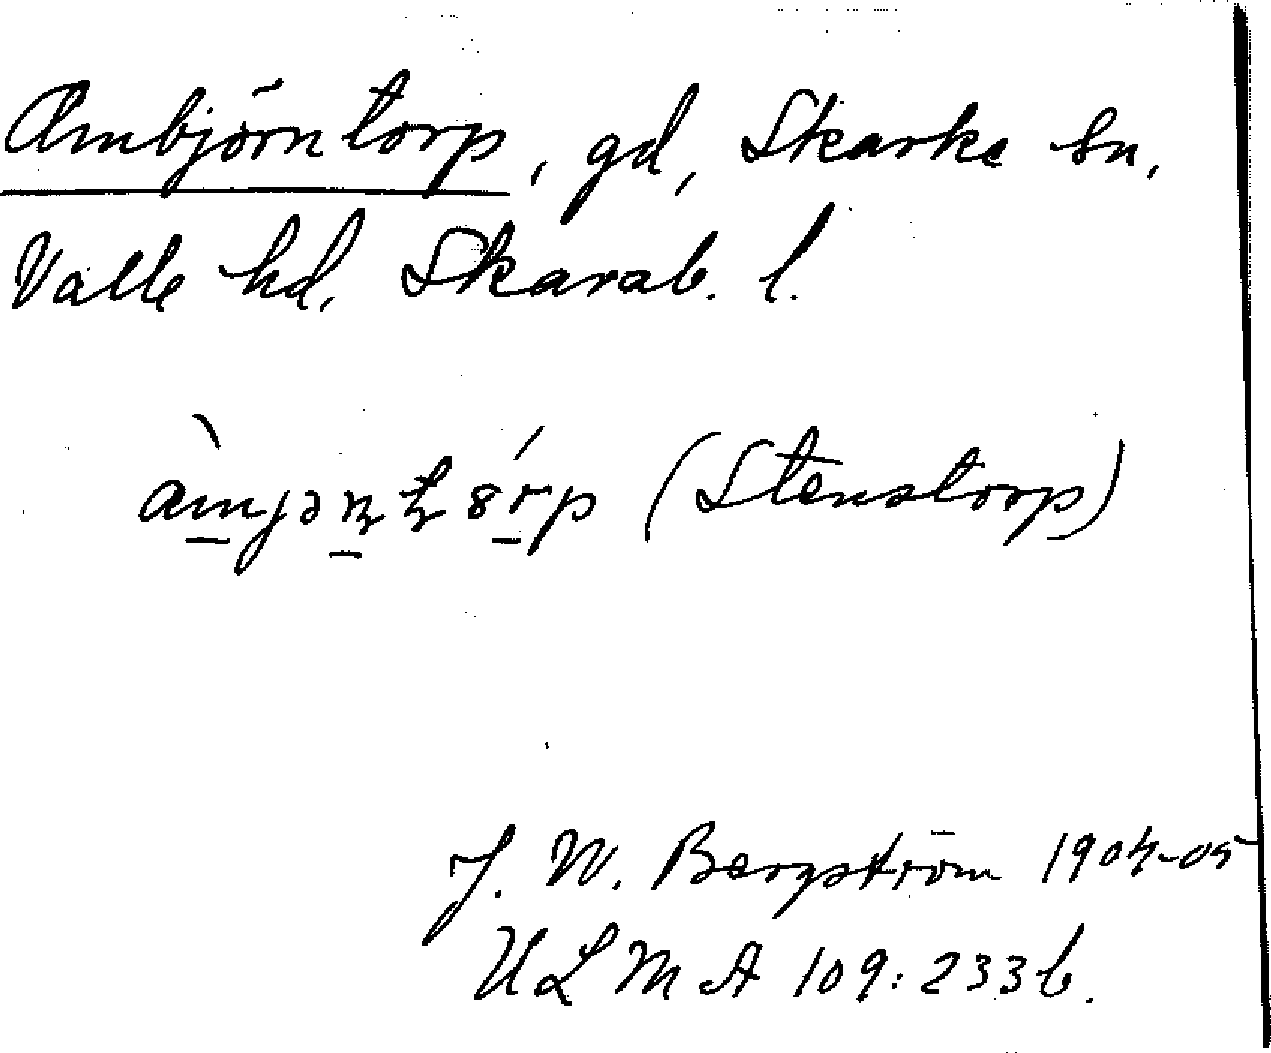 Ambjörntorp, gd, Skarke sn,
Valle hd, Skarab. l.
(Stenstorp)
J. W. Bergström 1904-05
ULMA 109:233b.